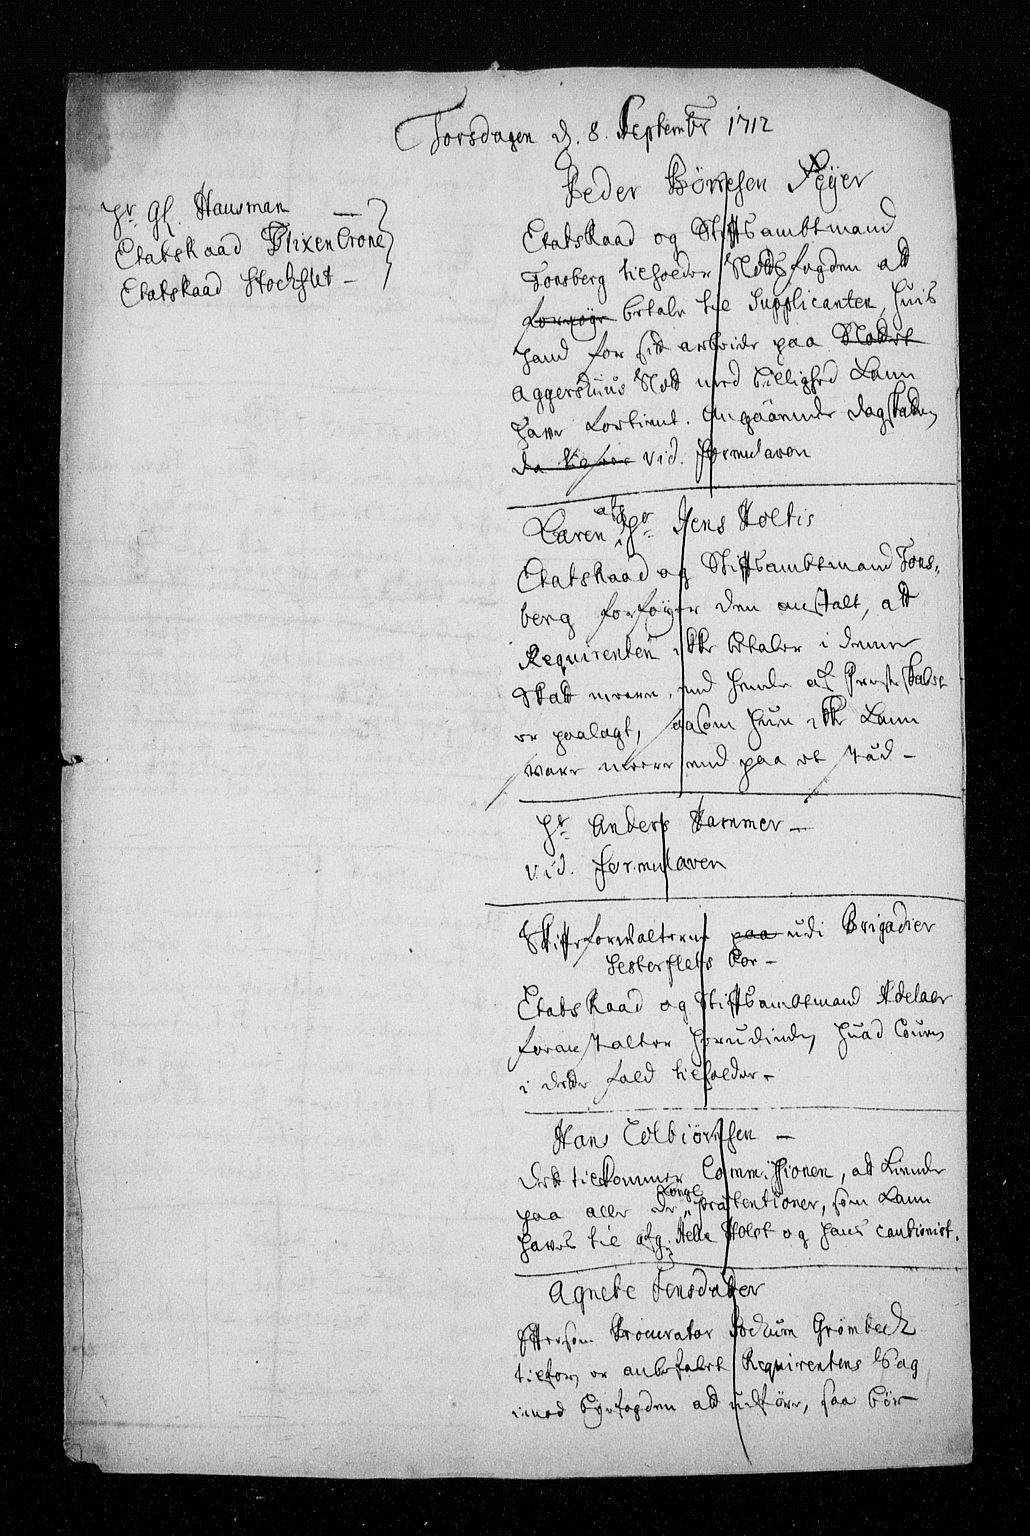 Torsdagen d. 8. Septembr 1712
Hr. Gl. Hausman
Etatsraad Flixencrone
Etatsraad Stochflet -
Peder Börresen Reyer
Etatsraad og Stiftsambtmand
Tonsberg tilholder Slotsfogden att
betale til Supplicanten, huis
hand for sitt arbeide paa Slottet
Aggershuus Slott med billighed kand
have fortient. Angaaende dagskatten
vid. formularen
Karen afg. Hr. Jens Holtis
Etatsraad og Stiftsambtmand Tons-
berg forföyer den anstalt, att
Requirenten ikke betaler i denne
Skatt meere, end hende af Præsteskabet
er paalagt, saasom hun ikke kand
være meere end paa et stæd -
Hr. Anders Hammer -
vid. formularen
Skifteforvalterne paa udi Brigadier
Lesterflets boe -
Etatsraad og Stiftsambtmand Adelaer
foranstalter herudinden huad Loven
i dette fald tilholder -
Hans Colbiörnsen -
Dett tilkommer Commissionen, att kiende
paa alle de Kongl. prætentioner, som kand
haves til afg. Holst og hans cautionist.
Agnete Jensdatter
Eftersom Procurator Jochum Grönbech
tilforn er anbefalet Requirentens Sag
imod Byefogden att udföre, saa bör